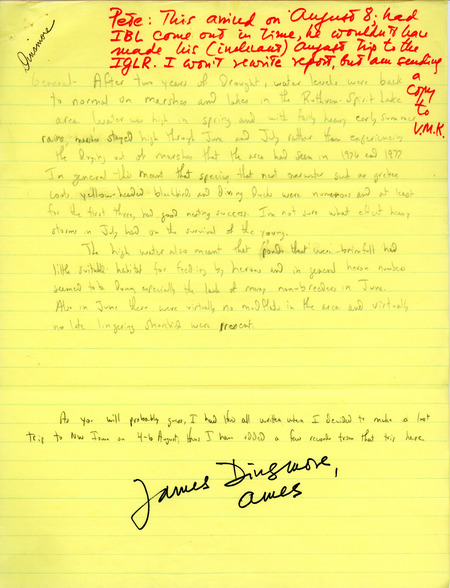 Dinsmore
Pete: This arrived on August 8; had
IBL come out in time, he wouldn't have
made his (irrelevant) August trip to the
IGLR. I won't rewrite report, but am sending
a copy
to
V.M.K.
General - After two years of Drought, water levels were back
to normal on marshes and lakes in the Ruthven-Spirit Lake
area. Water was high in spring and with fairly heavy early summer
rains, marshes stayed high through June and July rather than experiencing
the drying out of marshes that the area had seen in 1976 and 1977.
In general this meant that species that nest near water such as grebes
coots, yellow-headed blackbirds and diving ducks were numerous and at least
for the first three, had good nesting success. I'm not sure what effect heavy
storms in July had on the survival of the young.
The high water also meant that ponds that were brimfull had
little suitable habitat for feeding by herons and in general heron numbers
seemed to be down, especially the lack of many non-breeders in June.
Also in June there were virtually no mudflats in the area and virtually
no late lingering shorebirds were present.
As you will probably guess, I had this all written when I decided to make a last
trip to NW Iowa on 4-6 August, thus I have added a few records from that trip here.
James Dinsmore,
Ames